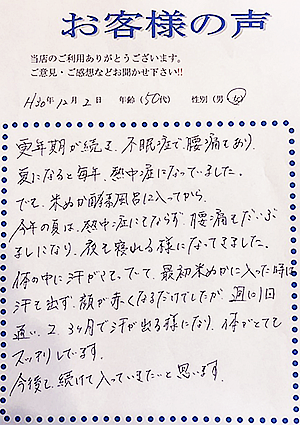 お客様の声
当店のご利用ありがとうございます。
ご意見・ご感想などお聞かせ下さい!!
H30年12月2日 年齢(50代) 性別(男 女)
更年期が続き、不眠症で腰痛もあり、
夏になると毎年、熱中症になっていました。
でも、米ぬか酵素風呂に入ってから、
今年の夏は、熱中症にもならず、腰痛もだいぶ
ましになり、夜も寝れる様になってきました。
体の中に汗が
最初米ぬかに入った時は
汗も出ず、顔が赤くなるだけでしたが、週に1回
通い、2、3ヶ月で汗が出る様になり、体がとても
スッキリしています。
今後も、続けて入っていきたいと思います。